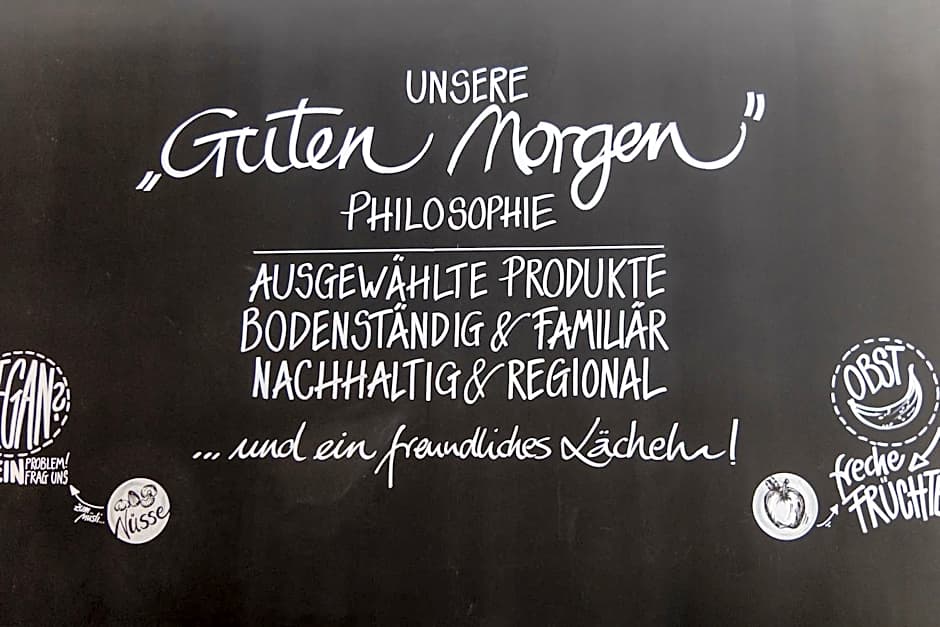 UNSERE
„Guten Morgen"
PHILOSOPHIE
AUSGEWÄHLTE PRODUKTE
BODENSTÄNDIG & FAMILIÄR
NACHHALTIG & REGIONAL
... und ein freundliches Lächeln!
EGAN?
EIN PROBLEM!
FRAG UNS
zum
müsli...
Nüsse
OBST
freche
FRÜCHTE